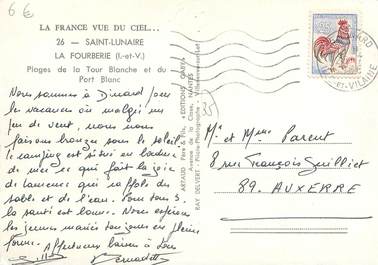 6 €
LA FRANCE VUE DU CIEL...
26 – SAINT-LUNAIRE
LA FOURBERIE (I.-et-V.)
Plages de la Tour Blanche et du
Port Blanc
Nous sommes à Dinard pour
les vacances où malgré un
peu de vent, nous nous
faisons bronzer sous le soleil,
le camping est situé en bordure
de mer ce qui fait la joie
de Laurence qui raffole du
sable et de l'eau. Pour tous 3
la santé est bonne. Nous espérons
les jeunes mariés toujours en pleine
forme. Affectueux baisers à tous
Bernadette
ARTAUD Père & Fils "EDITIONS GABY"
Avenue de la Close, NANTES
RAY DELVERT - Photo-Photographe - Villeneuve-sur-Lot
35
ET-VILAINE
Mr et Mme Parent
8 rue François Guilliet
89. AUXERRE